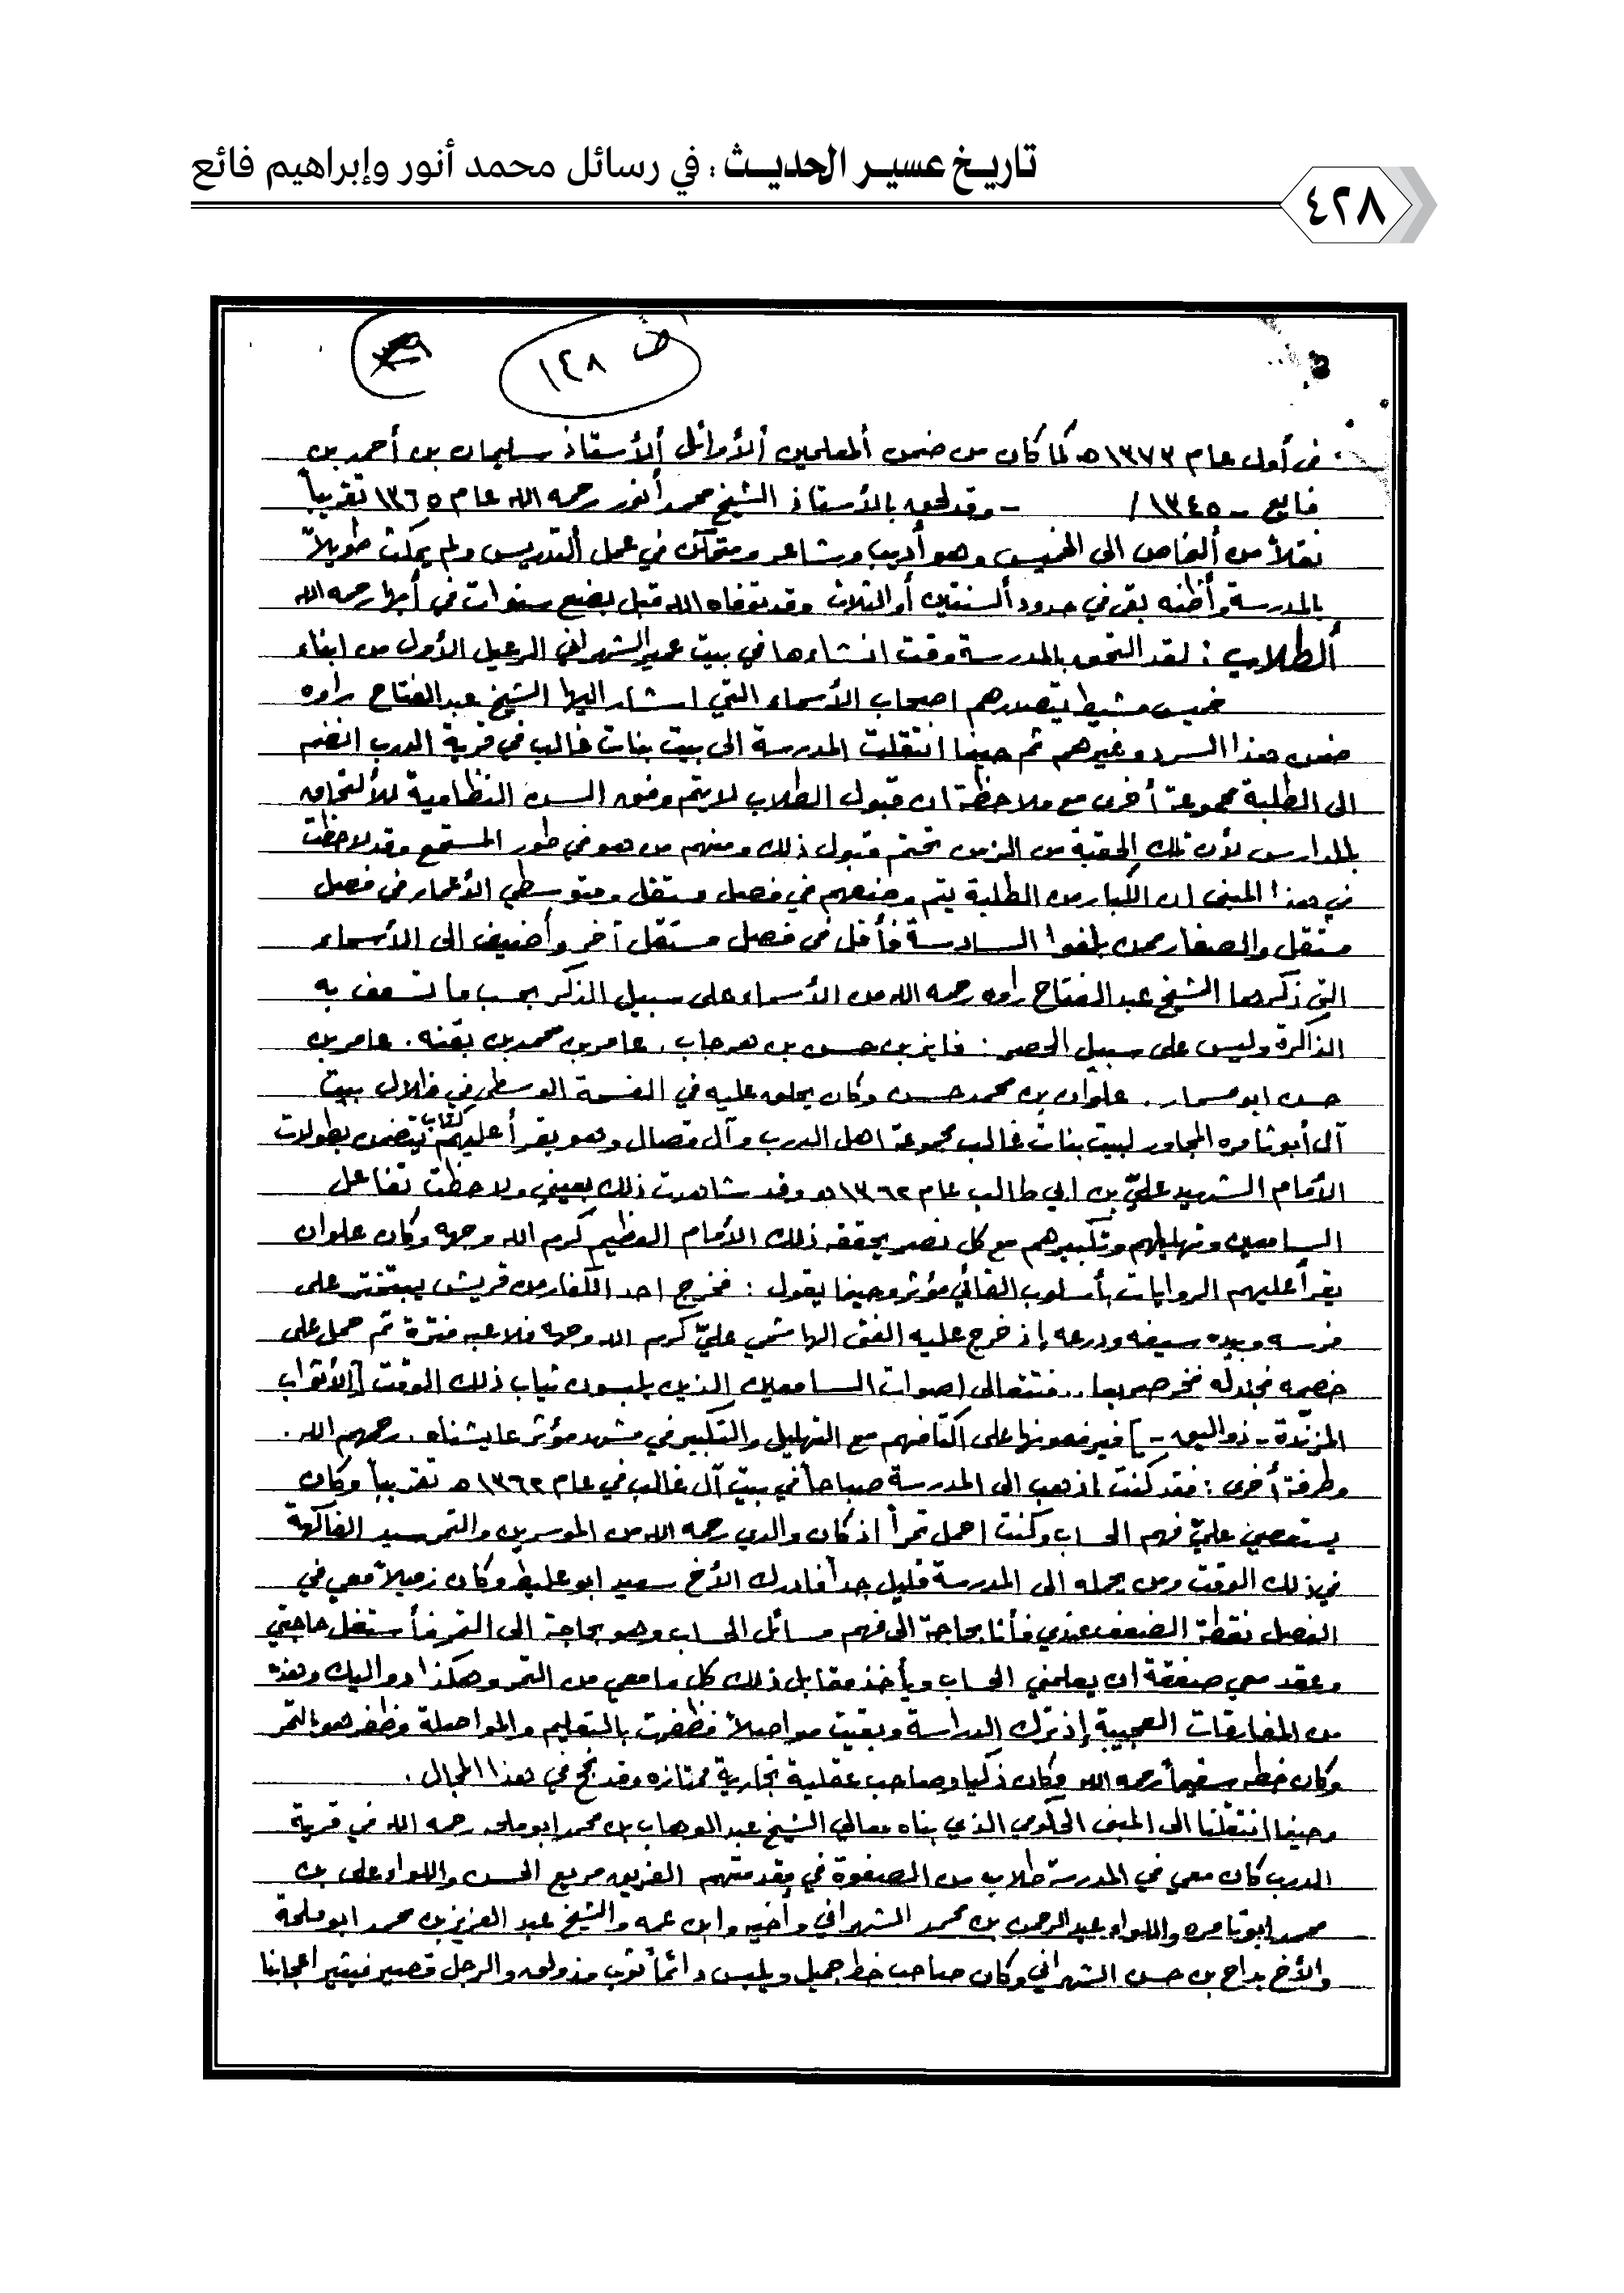 تاريخ عسير الحديث : في رسائل محمد أنور وإبراهيم فائع
٤٢٨
ض ١٤٨
في أول عام ١٣٧٣هـ كما كان من ضمن المعلمين الأوائل الأستاذ سليمان بن أحمد بن
فايع - ١٣٤٥ / - وقد لحق بالأستاذ الشيخ محمد أنور رحمه الله عام ١٣٦٥ تقريباً
نقلاً من الخاص الى الخميس وهو أديب وشاعر ومتمكن في عمل التدريس ولم يمكث طويلاً
بالمدرسة وأظنه بقي في حدود السنتين أو الثلاث وقد توفاه الله قبل بضع سنوات في أبها رحمه الله
الطلاب : لقد التحق بالمدرسة وقت انشاءها في بيت عمير الشهراني الرعيل الأول من ابناء
خميس مشيط يتصدرهم اصحاب الأسماء التي اشار اليها الشيخ عبدالفتاح راوه
ضمن هذا السرد وغيرهم ثم حينما انتقلت المدرسة الى بيت بنات غالب في قرية الدرب انضم
الى الطلبة مجموعة أخرى مع ملاحظة ان قبول الطلاب لا يتم وفق السن النظامية للألتحاق
بالمدارس لأن تلك الحقبة من الزمن تحتم قبول ذلك ومنهم من هو في طور المستمع وقد لاحظت
في هذا المبنى ان الكبار من الطلبة يتم وضعهم في فصل مستقل ومتوسطي الأعمار في فصل
مستقل والصغار ممن بلغوا السادسة فأقل في فصل مستقل آخر وأضيف الى الأسماء
التي ذكرها الشيخ عبدالفتاح راوه رحمه الله من الأسماء على سبيل الذكر بحسب ما تسعف به
الذاكرة وليس على سبيل الحصر : فايز بن حسن بن هرجاب . عامر بن محمد بن بقنه . عامر بن
حسن ابو مسمار . علوان بن محمد حسن وكان يحلق عليه في الفسحة الوسطى في ظلال بيت
آل أبو ثامره المجاور لبيت بنات غالب مجموعة اهل الدرب وآل قصال وهو يقرأ عليهم كتاب يتضمن بطولات
الأمام الشهيد عليّ بن ابي طالب عام ١٣٦٢هـ وقد شاهدت ذلك بعيني ولاحظت تفاعل
السامعين وتهليلهم وتكبيرهم مع كل نصر يحققه ذلك الأمام العظيم كرم الله وجهه وكان علوان
يقرأ عليهم الروايات بأسلوب القائي مؤثر وحينما يقول : فخرج احد الكفار من قريش يتبختر على
فرسه وبيده سيفه ودرعه إذ خرج عليه الفتى الهاشمي عليّ كرم الله وجهه فلاعبه فترة ثم حمل على
خصمه فجندله فخر صريعا .. فتتعالى اصوات السامعين الذين يلبسون ثياب ذلك الوقت [الأثواب
المزندة - ذوالیق -] فيرفعونها على اكتافهم مع التهليل والتكبير في مشهد مؤثر عايشناه . رحمهم الله .
وطرفة أخرى : فقد كنت اذهب الى المدرسة صباحاً في بيت آل غالب في عام ١٣٦٢هـ تقريباً وكان
يستعصي عليّ فهم الحساب وكنت احمل تمراً اذ كان والدي رحمه الله من الموسرين والتمر سيد الفاكهة
في ذلك الوقت ومن يحمله الى المدرسة قليل جداً فادرك الأخ سعيد ابو عليط وكان زميلاً معي في
الفصل نقطة الضعف عندي فأنا بحاجة الى فهم مسائل الحساب وهو بحاجة الى التمر فأستغل حاجتي
وعقد معي صفقة ان يعلمني الحساب ويأخذ مقابل ذلك كل ما معي من التمر وهكذا دواليك وهذه
من المفارقات العجيبة إذ ترك الدراسة وبقيت مواصلاً فظفرت بالتعليم والمواصلة وظفر هو بالتمر
وكان خطه سقيماً رحمه الله وكان ذكيا وصاحب عقلية تجارية ممتازه وقد نجح في هذا المجال .
وحينما انتقلنا الى المبنى الحكومي الذي بناه معالي الشيخ عبدالوهاب بن محمد ابو ملحه رحمه الله في قرية
الدرب كان معي في المدرسة طلاب من الصفوة في مقدمتهم الفريق مريع الحسن واللواء على بن
محمد ابو ثامره واللواء عبدالرحمن بن محمد الشهراني وأخيه وابن عمه والشيخ عبد العزيز بن محمد ابو ملحة
والأخ بداح بن حسن الشهراني وكان صاحب خط جميل ويلبس دائماً ثوب مذولق والرجل قصير فيثير اعجابنا